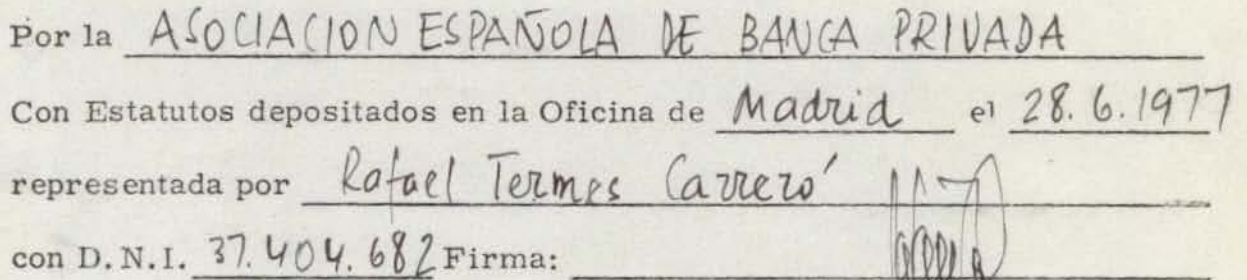 Por la ASOCIACION ESPAÑOLA DE BANCA PRIVADA
Con Estatutos depositados en la Oficina de Madrid el 28.6.1977
representada por Rafael Termes Carreró
con D.N.I. 37.404.682 Firma: